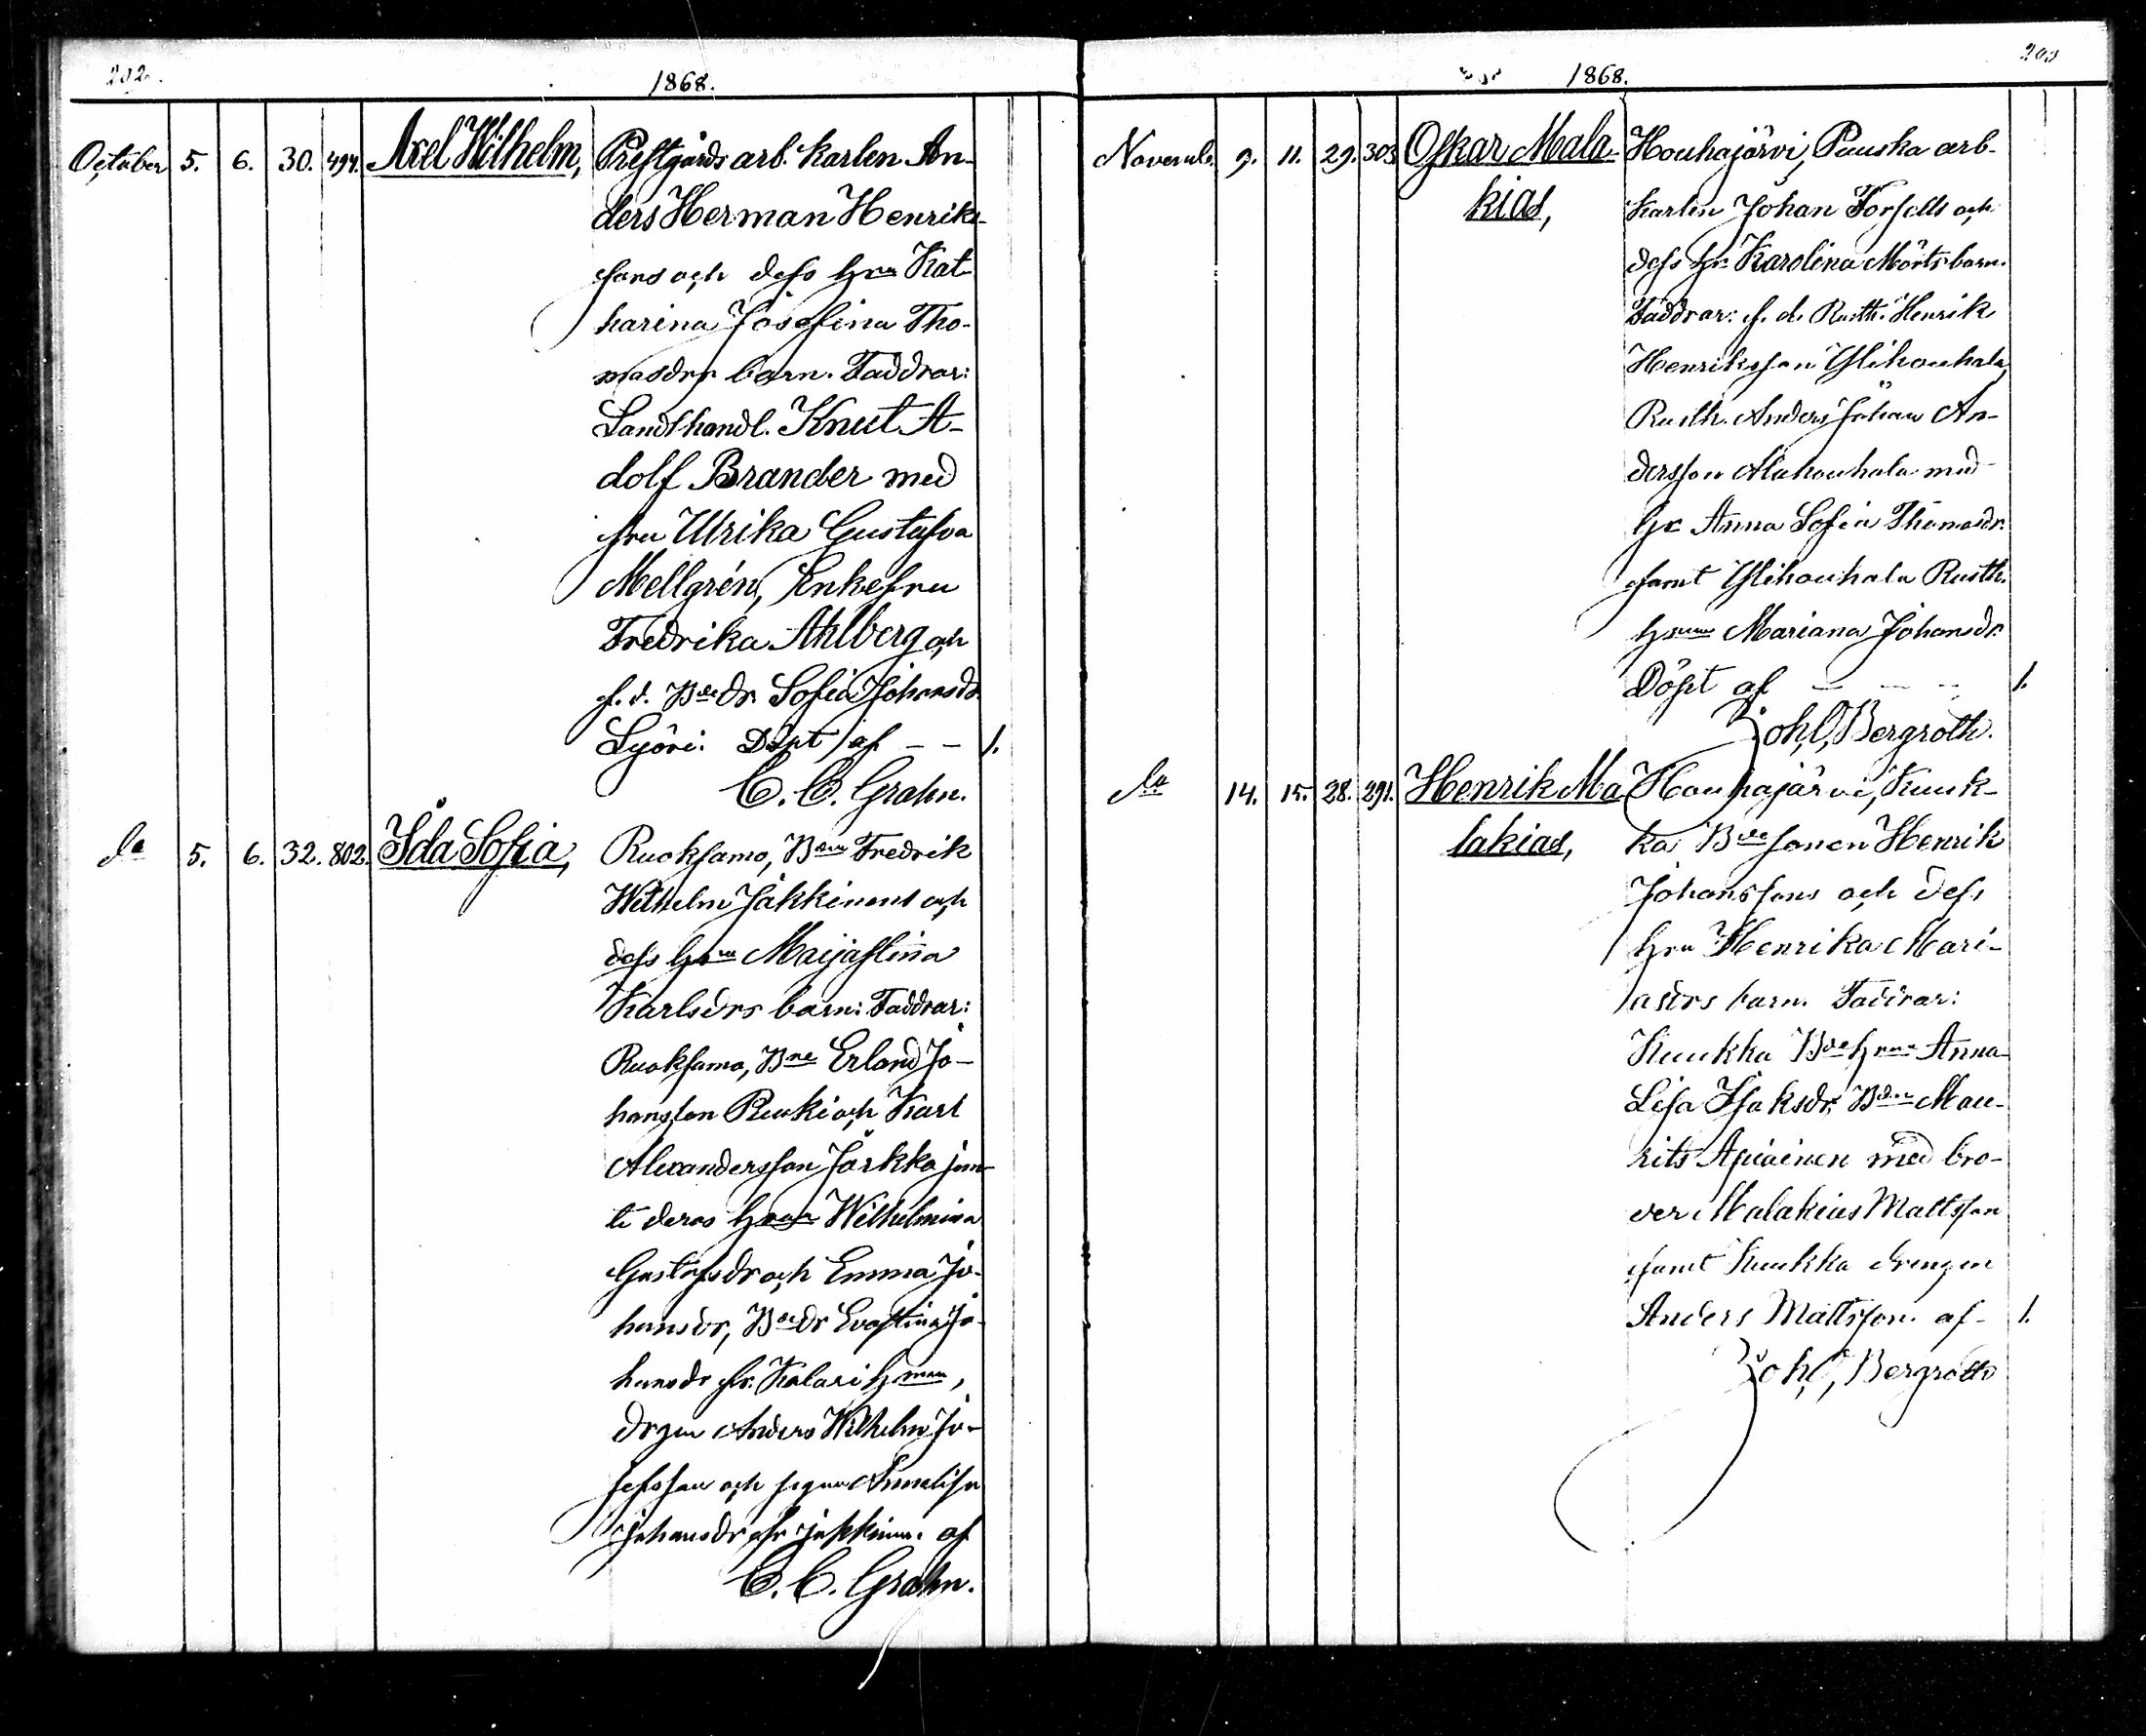 202.
1868.
October 5. 6. 30. 494. Axel Wilhelm, Prestgårds arb. karlen An-
ders Herman Henriks-
sons och dess hru Kat-
harina Josefina Tho-
masdrs barn. Faddrar:
Landthandl. Knut A-
dolf Brander med
fru Ulrika Gustafva
Mellgrén, Enkefru
Fredrika Ahlberg och
f. d. Bdedr. Sofia Johansdr
Lyöri. Döpt af – – 1.
C. C. Grahn.
do 5. 6. 32. 802. Ida Sofia, Ruoksamo, Bden Fredrik
Wilhelm Jäkkinens och
dess hru Maijastina
Karlsdrs barn: Faddrar:
Ruoksamo, Bne Erland Jo-
hansson Ruoki och Karl
Alexandersson Jarkko jem-
te deras hrur Wilhelmina
Gustafsdr och Emma Jo-
hansdr, Bdedr Evastina Jo-
hansdr fr. Kalari hman,
drgen Anders Wilhelm Jo-
sefsson och pigan Annalisa
Johansdr fr Jäkkinen. af
C. C. Grahn.
203
1868.
Novemb. 9. 11. 29. 303 Oskar Mala- Houhajärvi, Pauska arb-
kias, karlen Johan Forsells och
dess hr Karolina Mörts barn.
Faddrar: f. d. Rusth. Henrik
Henriksson Ylihouhala,
Rusth. Anders Johan An-
dersson Alahouhala med
hr Anna Sofia Thomasdr.
samt Ylihouhala Rusth.
hrun Mariana Johansdr.
Döpt af – – – 1.
Joh. Bergroth.
do 14. 15. 28. 291. Henrik Ma Houhajärvi, Kuuk-
lakias, ka Bdesonen Henrik
Johanssons och dess
hru Henrika Mari-
asdrs barn. Faddrar:
Kuukka Bdehrun Anna
Lisa Isaksdr, Bden Mau-
rits Apiainen med bro-
der Malakias Mattsson
samt Kuukka drengen
Anders Mattsson. af – 1.
Joh. Bergroth